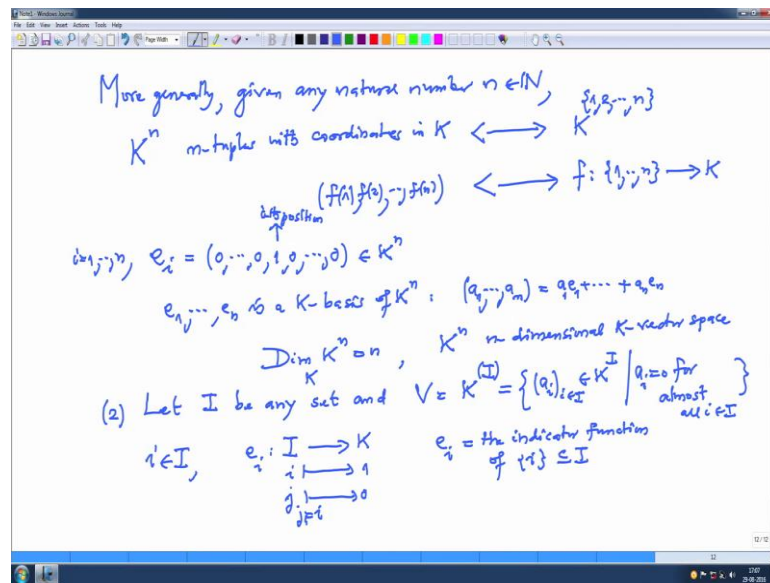 Note1 - Windows Journal
File Edit View Insert Actions Tools Help
Page Width
More generally, given any natural number n ∈ ℕ,
K^n n-tuples with coordinates in K ⟷ K^{{1,2,...,n}}
(f(1), f(2), ..., f(n)) ⟷ f: {1,...,n} ⟶ K
position
↑
i=1,...,n, e_i = (0,...,0,1,0,...,0) ∈ K^n
e_1,...,e_n is a K-basis of K^n: (a_1,...,a_n) = a_1e_1+...+a_ne_n
Dim_K K^n = n, K^n n-dimensional K-vector space
(2) Let I be any set and V = K^{(I)} = {(a_i)_{i∈I} ∈ K^I | a_i=0 for almost all i∈I}
i∈I, e_i: I ⟶ K e_i = the indicator function of {i} ⊆ I
i ⟼ 1
j ⟼ 0
12/12
12
17:07
29-08-2018